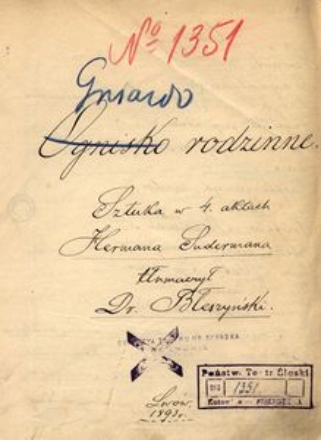 No 1351
Gniazdo
Ognisko rodzinne.
Sztuka w 4. aktach
Hermana Sudermana
tłumaczył
Dr. Błeszyński.
Państw. Teatr Śląski
1351
Lwów.
1893r.